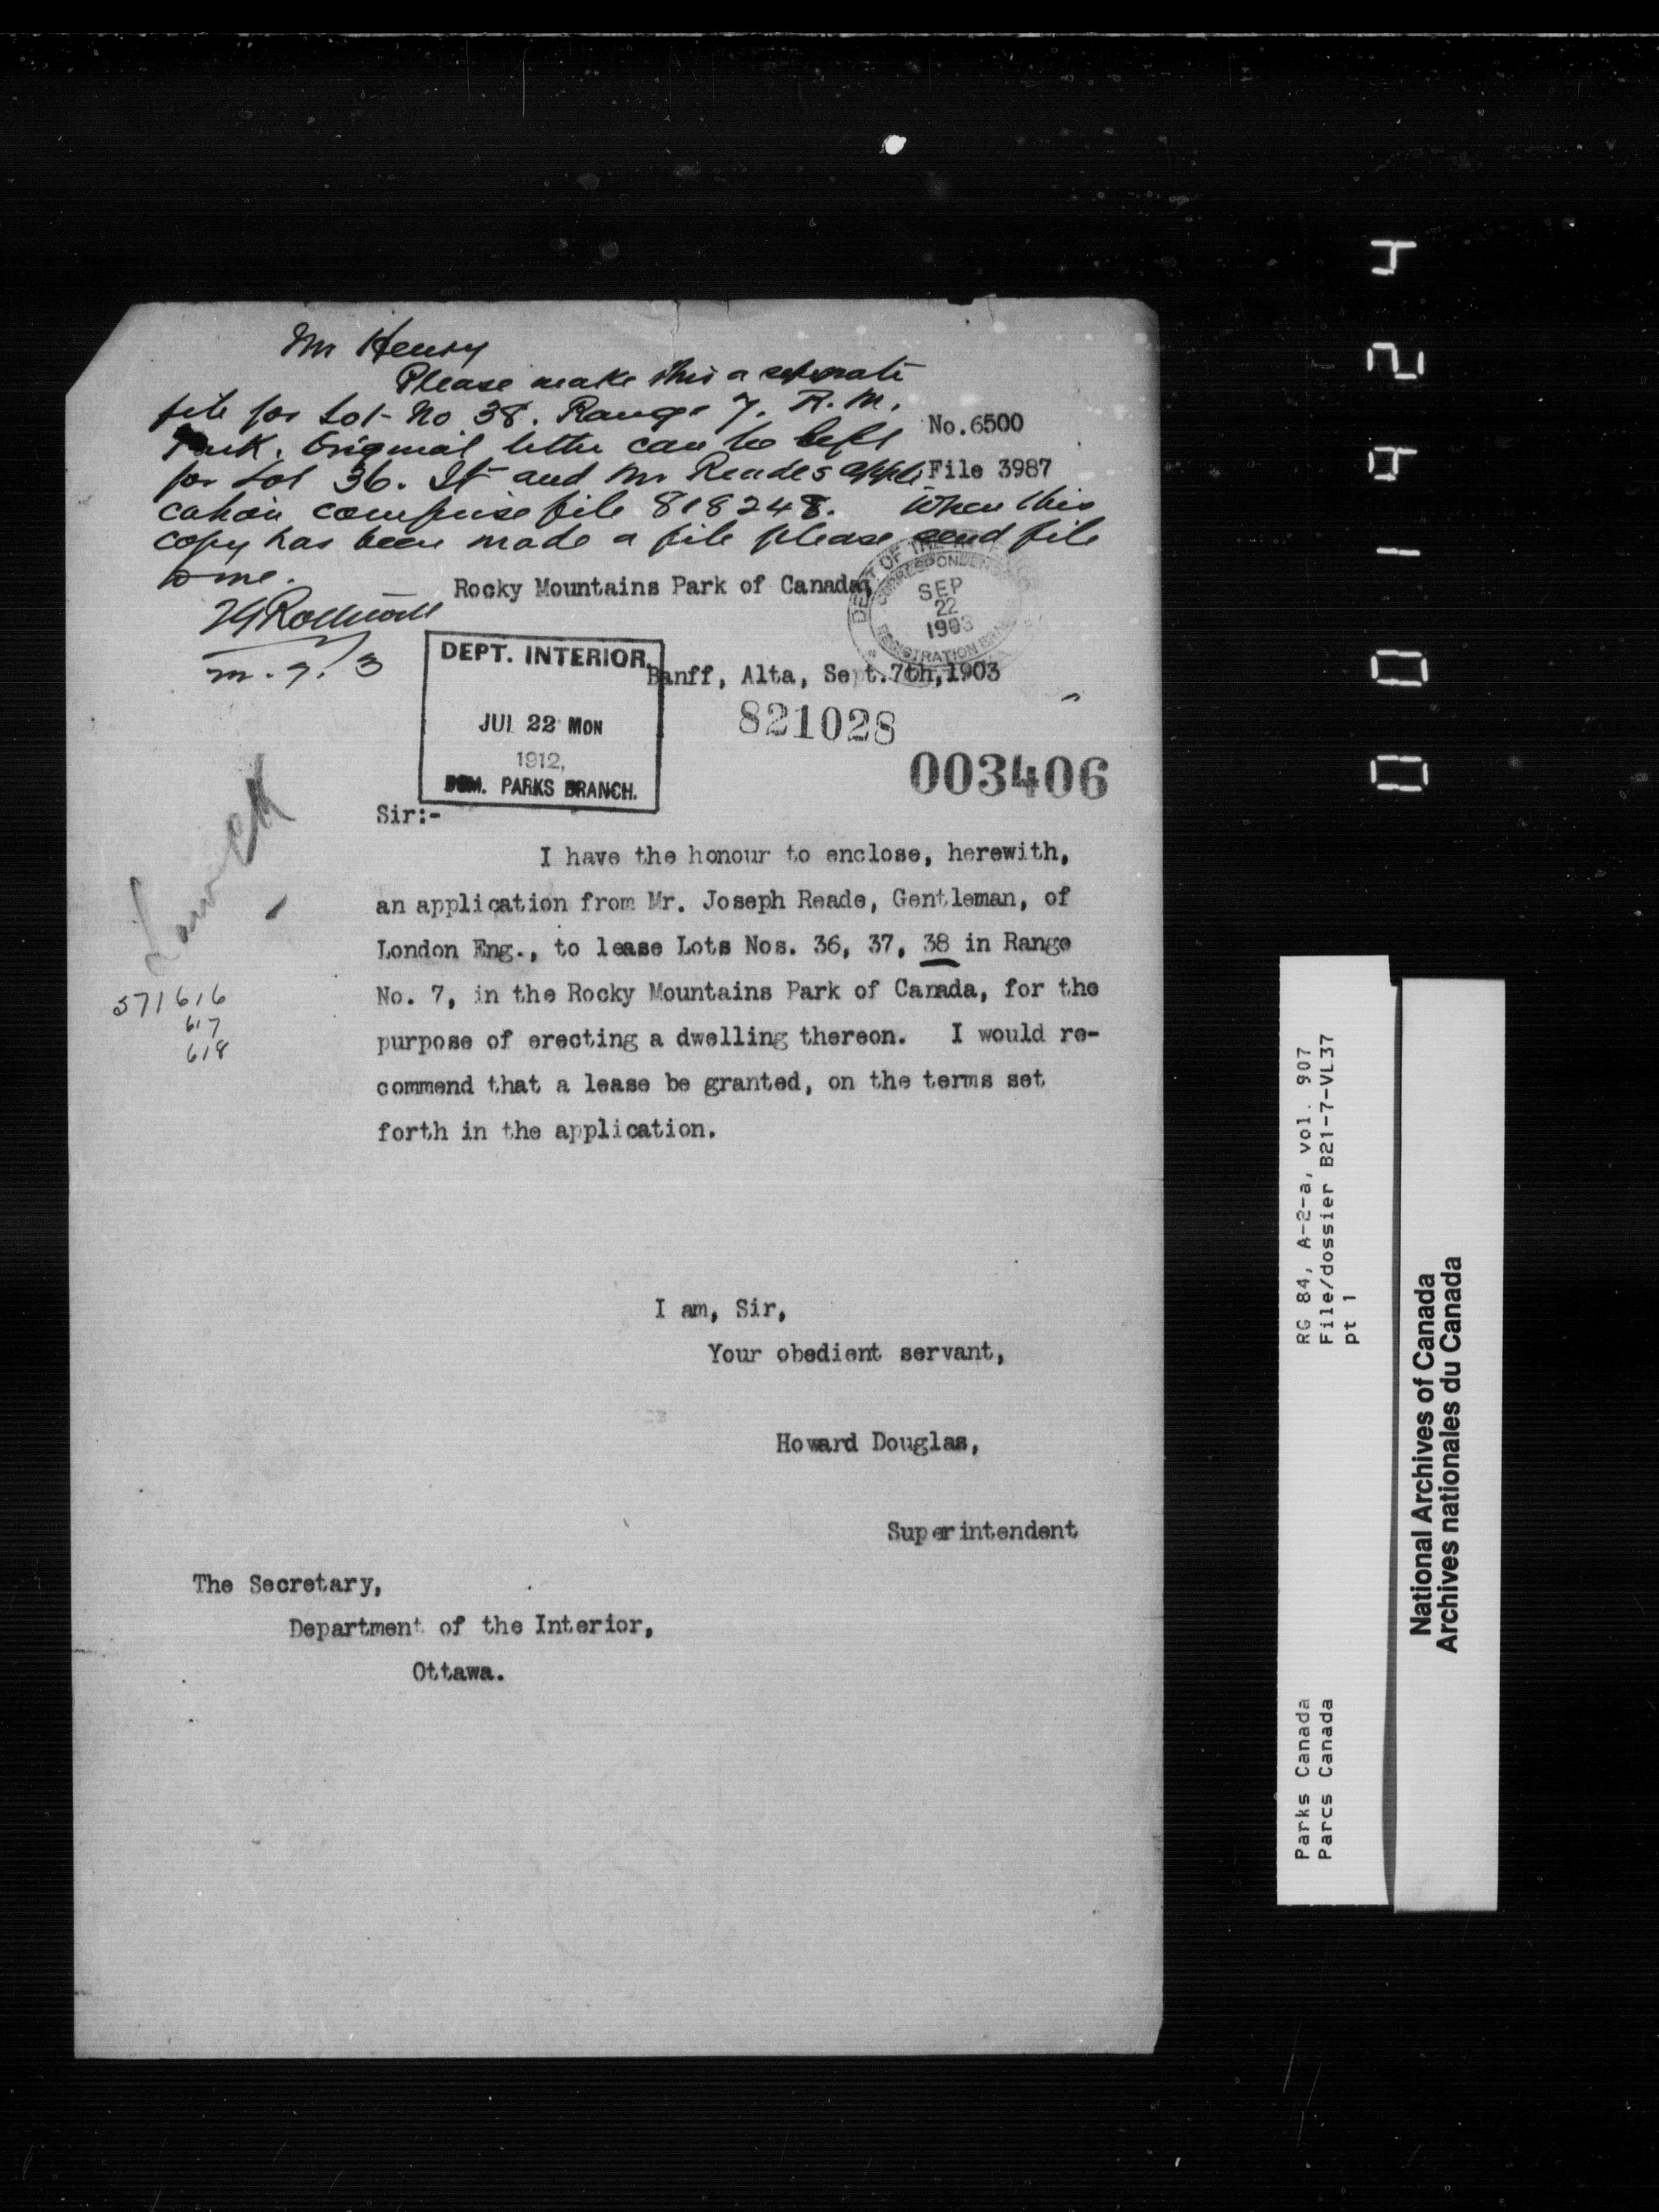 Mr Henry
Please make this a separate
file for Lot No 38. Range 7. R. M.
Park. Original letter can be left
No.6500
for Lot 36. It and Mr Reades appli
File 3987
cation comprise file 818248. When this
copy has been made a file please send file
to me.
Rocky Mountains Park of Canada,
DEPT OF THE INTERIOR
CORRESPONDENCE
SEP
22
1903
REGISTRATION BRANCH
DEPT. INTERIOR,
JUL 22 MON
1912,
DOM. PARKS BRANCH.
Banff, Alta, Sept.7th,1903
821028
003406
Sir:-
I have the honour to enclose, herewith,
an application from Mr. Joseph Reade, Gentleman, of
London Eng., to lease Lots Nos. 36, 37, 38 in Range
No. 7, in the Rocky Mountains Park of Canada, for the
purpose of erecting a dwelling thereon. I would re-
commend that a lease be granted, on the terms set
forth in the application.
571616
617
618
I am, Sir,
Your obedient servant,
Howard Douglas,
Superintendent
The Secretary,
Department of the Interior,
Ottawa.
RG 84, A-2-a, vol. 907
File/dossier B21-7-VL37
pt 1
Parks Canada
Parcs Canada
National Archives of Canada
Archives nationales du Canada